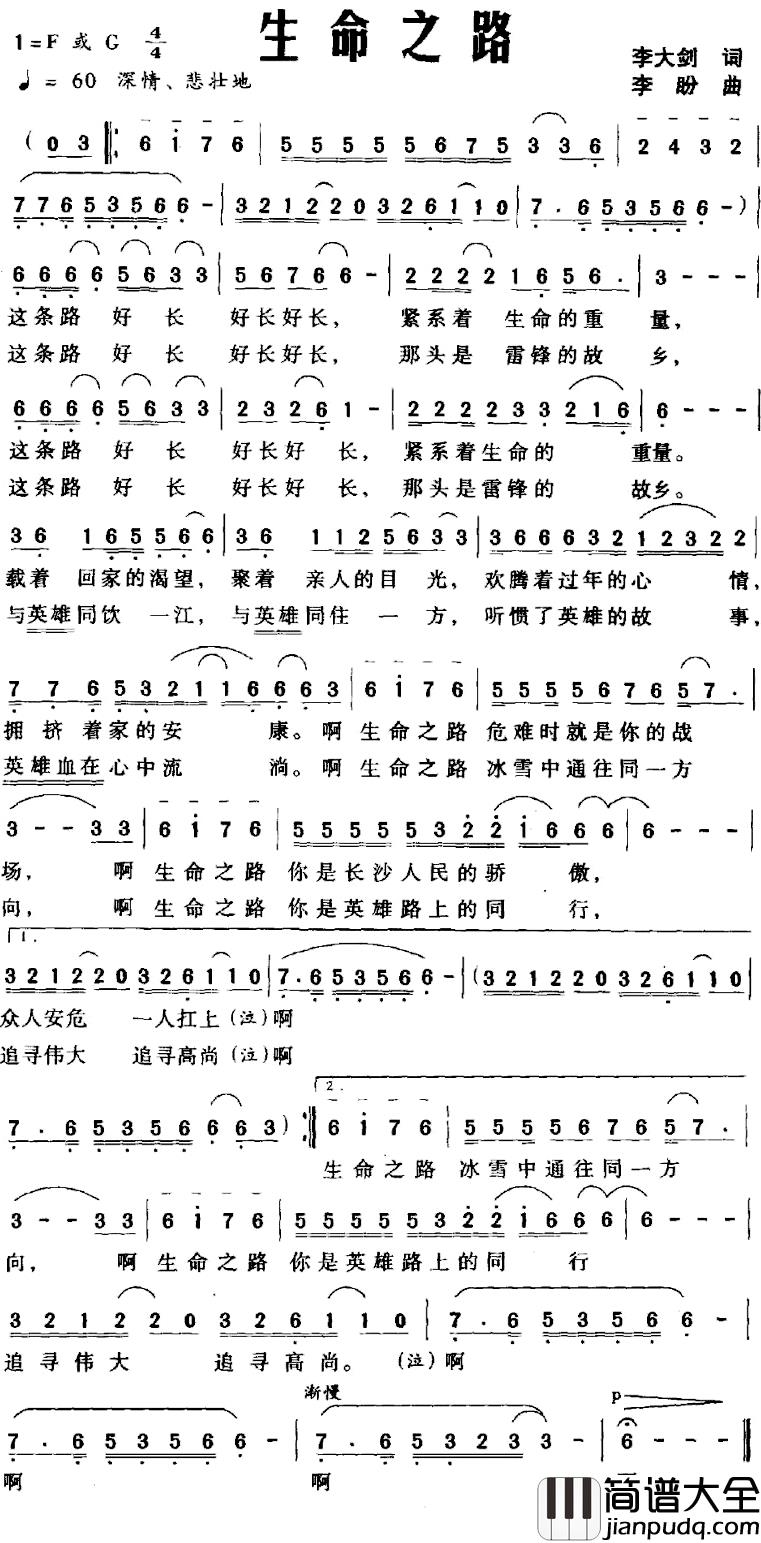 生命之路
1=F 或 G 4/4
李大剑 词
♩= 60 深情、悲壮地
李 盼 曲
( 0 3 ‖: 6 i 7 6 | 5 5 5 5 5 6 7 5 3 3 6 | 2 4 3 2
7 7 6 5 3 5 6 6 - | 3 2 1 2 2 0 3 2 6 1 1 0 | 7. 6 5 3 5 6 6 - )
6 6 6 6 5 6 3 3 | 5 6 7 6 6 - | 2 2 2 2 1 6 5 6 . | 3 - - -
这条路 好 长 好长好长， 紧系着 生命的重 量，
这条路 好 长 好长好长， 那头是 雷锋的故 乡，
6 6 6 6 5 6 3 3 | 2 3 2 6 1 - | 2 2 2 2 3 3 2 1 6 | 6 - - -
这条路 好 长 好长好 长， 紧系着生命的 重量。
这条路 好 长 好长好 长， 那头是雷锋的 故乡。
3 6 1 6 5 5 6 6 | 3 6 1 1 2 5 6 3 3 | 3 6 6 6 3 2 1 2 3 2 2
载着 回家的渴望， 聚着 亲人的目 光， 欢腾着过年的心 情，
与英雄同饮 一江， 与英雄同住 一 方， 听惯了英雄的故 事，
7 7 6 5 3 2 1 1 6 6 6 3 | 6 i 7 6 | 5 5 5 5 6 7 6 5 7 .
拥 挤 着家的安 康。啊 生命之路 危难时就是你的战
英雄血在心中流 淌。啊 生命之路 冰雪中通往同一方
3 - - 3 3 | 6 i 7 6 | 5 5 5 5 5 3 2 2 1 6 6 6 | 6 - - -
场， 啊 生命之路 你是长沙人民的骄 傲，
向， 啊 生命之路 你是英雄路上的同 行，
1.
3 2 1 2 2 0 3 2 6 1 1 0 | 7. 6 5 3 5 6 6 - | ( 3 2 1 2 2 0 3 2 6 1 1 0
众人安危 一人扛上（泣）啊
追寻伟大 追寻高尚（泣）啊
2.
7 . 6 5 3 5 6 6 6 3 ) :‖ 6 i 7 6 | 5 5 5 5 6 7 6 5 7 .
生命之路 冰雪中通往同一方
3 - - 3 3 | 6 i 7 6 | 5 5 5 5 5 3 2 2 1 6 6 6 | 6 - - -
向， 啊 生命之路 你是英雄路上的同 行
3 2 1 2 2 0 3 2 6 1 1 0 | 7 . 6 5 3 5 6 6 -
追寻伟大 追寻高尚。（泣）啊
渐慢 p
7 . 6 5 3 5 6 6 - | 7 . 6 5 3 2 3 3 - | 6 - - - ‖
啊 啊
简谱大全
jianpudq.com